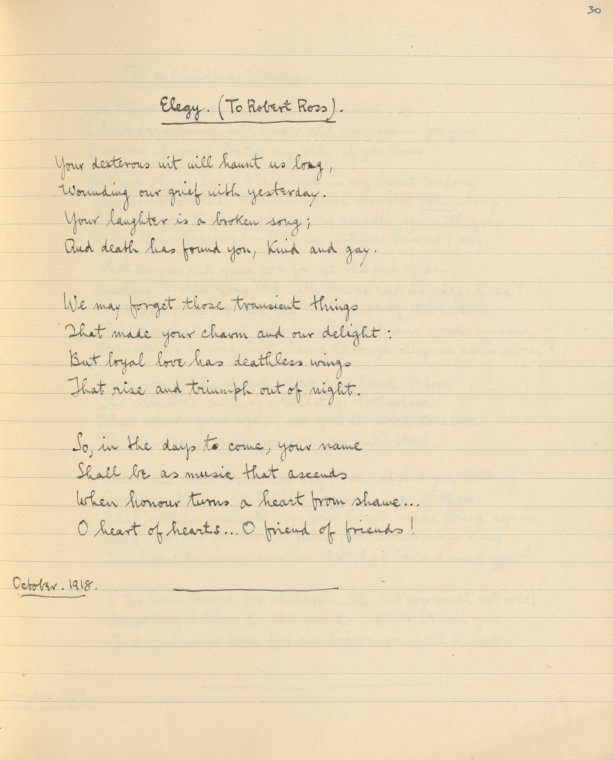 30
Elegy. (To Robert Ross).
Your dexterous wit will haunt us long,
Wounding our grief with yesterday.
Your laughter is a broken song;
And death has found you, kind and gay.
We may forget those transient things
That made your charm and our delight:
But loyal love has deathless wings
That rise and triumph out of night.
So, in the days to come, your name
Shall be as music that ascends
When honour turns a heart from shame...
O heart of hearts... O friend of friends!
October. 1918.